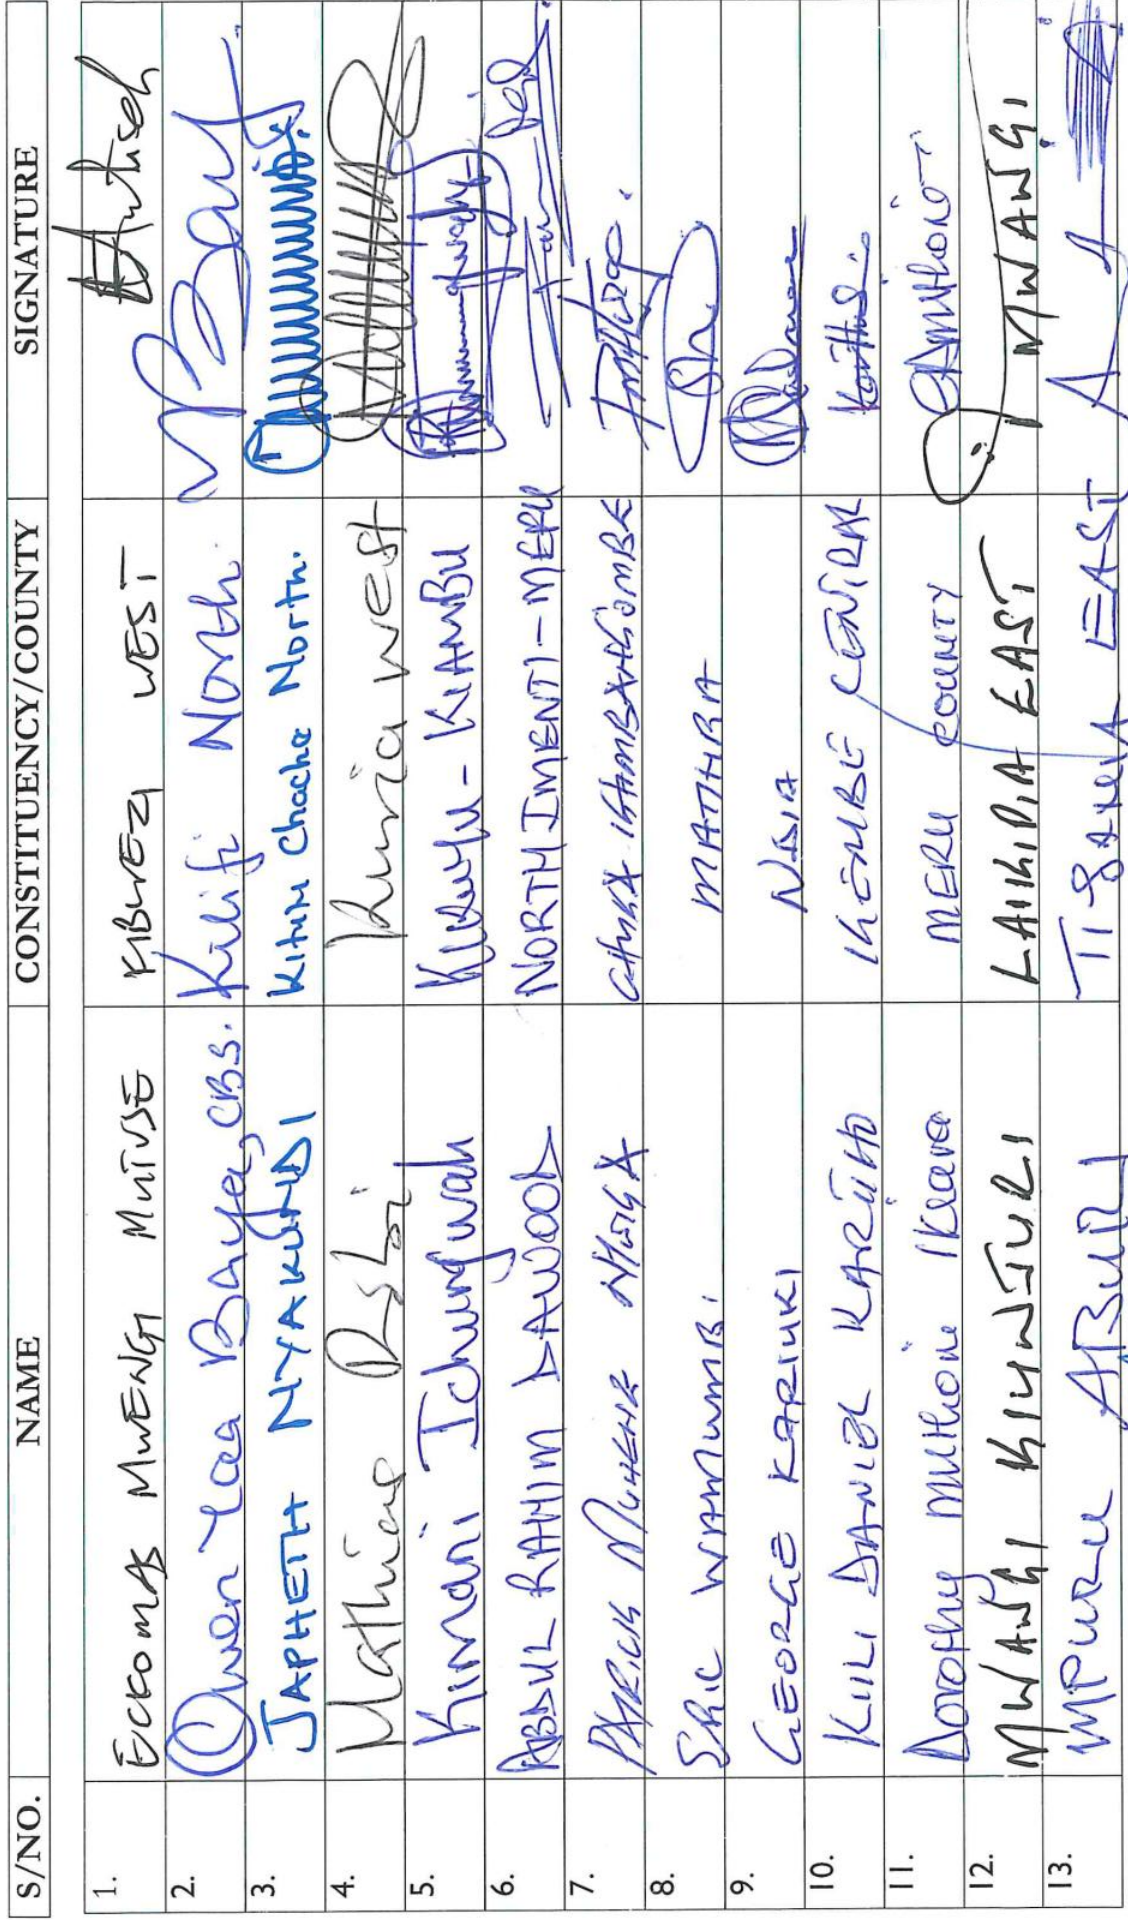 S/NO. NAME CONSTITUENCY/COUNTY SIGNATURE
1. ECCOMAS MWENGI MUTUSE KIBWEZI WEST Mutiseh
2. Owen Yaa Baya, CBS. Kilifi North. Baya
3. JAPHETH NYAKUNDI Kitutu Chache North.
4. Mathias Robi Kuria west
5. Kimani Ichung'wah KIKUYU - KIAMBU
6. ABDUL RAHIM DAWOOD NORTH IMENTI - MERU
7. PATRICK MUNENE NTWIGA CHUKA IGAMBANGOMBE
8. ERIC WAMUMBI. MATHIRA
9. GEORGE KARIUKI NDIA
10. KIILI DANIEL KARITHO IGEMBE CENTRAL
11. Dorothy Muthoni Ikiara MERU COUNTY
12. MWANGI KIUNJURI LAIKIPIA EAST MWANGI
13. MPURU ABURI TIGANIA EAST